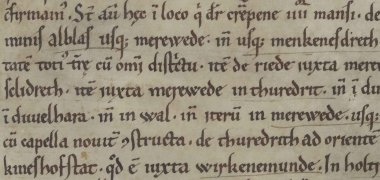 c̄firmam᷒. St̄ aū hęc ī loco q̇ dr̄ crępene iiii mansi. de
muniſ alblaſ uſq; merewede. in̄ uſq; menkenesdreth
tatē toti᷒ tr̄e cū om̄i diſtc̄tu. itē de riede iuxta mere
ſelidreth. itē iuxta merewede in thuredrit. in̄ ī du
ī duuelhara. in̄ in wal. in̄ iterū in merewede. uſq;
cū capella nouit̄ ꝯſtructa. de thuredrith ad oriente
kineſhofſtat. qd̄ ē iuxta wirkenemunde. In holti